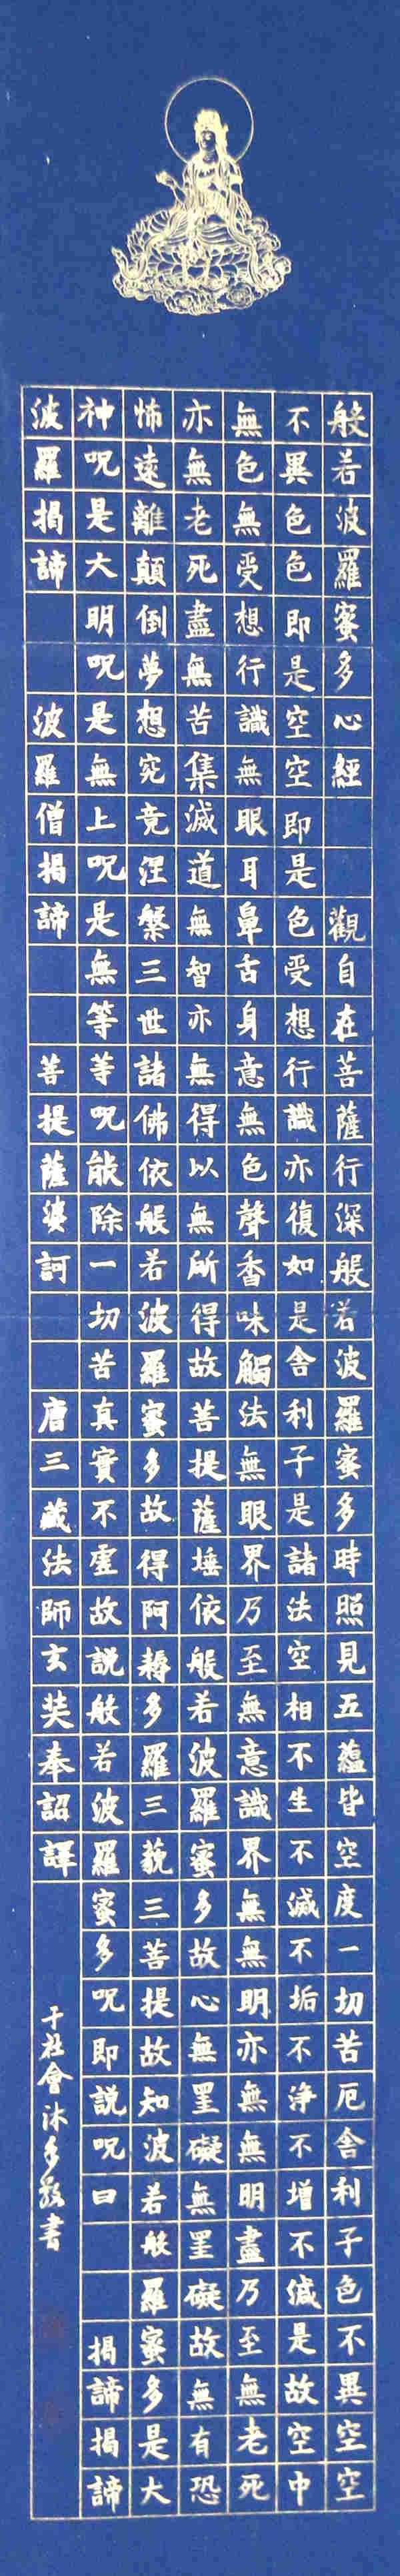 般若波羅蜜多心經 觀自在菩薩行深般若波羅蜜多時照見五蘊皆空度一切苦厄舍利子色不異空空
不異色色即是空空即是色受想行識亦復如是舍利子是諸法空相不生不滅不垢不淨不增不減是故空中
無色無受想行識無眼耳鼻舌身意無色聲香味觸法無眼界乃至無意識界無無明亦無無明盡乃至無老死
亦無老死盡無苦集滅道無智亦無得以無所得故菩提薩埵依般若波羅蜜多故心無罣礙無罣礙故無有恐
怖遠離顛倒夢想究竟涅槃三世諸佛依般若波羅蜜多故得阿耨多羅三藐三菩提故知波若般羅蜜多是大
神呪是大明呪是無上呪是無等等呪能除一切苦真實不虛故說般若波羅蜜多呪即說呪曰 揭諦揭諦
波羅揭諦 波羅僧揭諦 菩提薩婆訶 唐三藏法師玄奘奉詔譯
社會沐手敬書